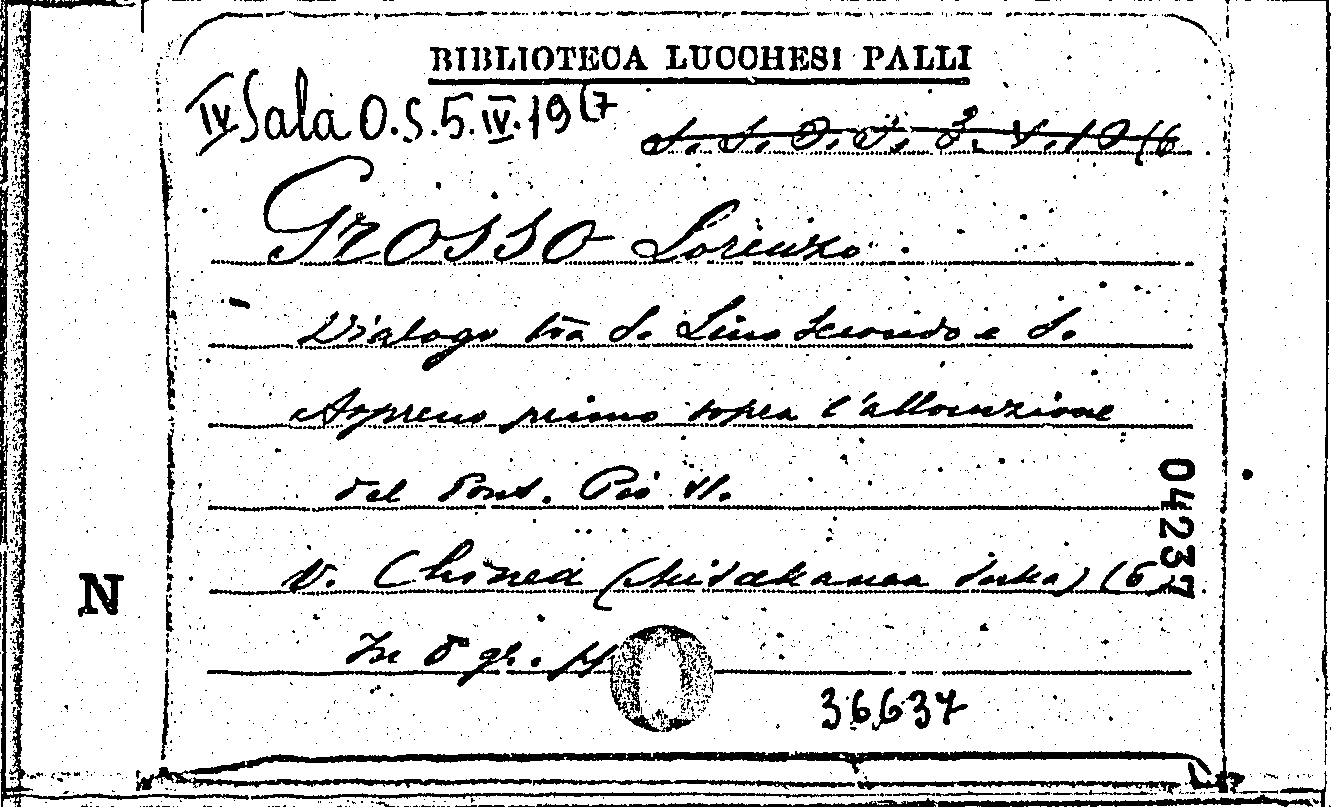 BIBLIOTECA LUCCHESI PALLI
IV Sala O.S.5.IV.19(7
S. S. O. S. 3. V. 19(6
GROSSO Lorenzo.
Dialogo tra S. Lino Secondo e S.
Aspreno primo sopra l'allocuzione
del Pont. Pio VI.
V. Chinea (Mi
In 8 gr.
04237
N
36637